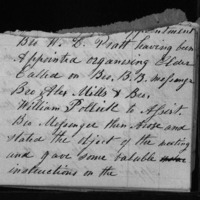 ointment
Bro W. L. Pratt having been
Appointed organising Elder
Called in Bro, B.B. Messenger
Bro Alex Mills & Bro.
William Pollick to Assist.
Bro Messenger then Arose and
stated the object of the meeting
and gave some valuable
instructions in the